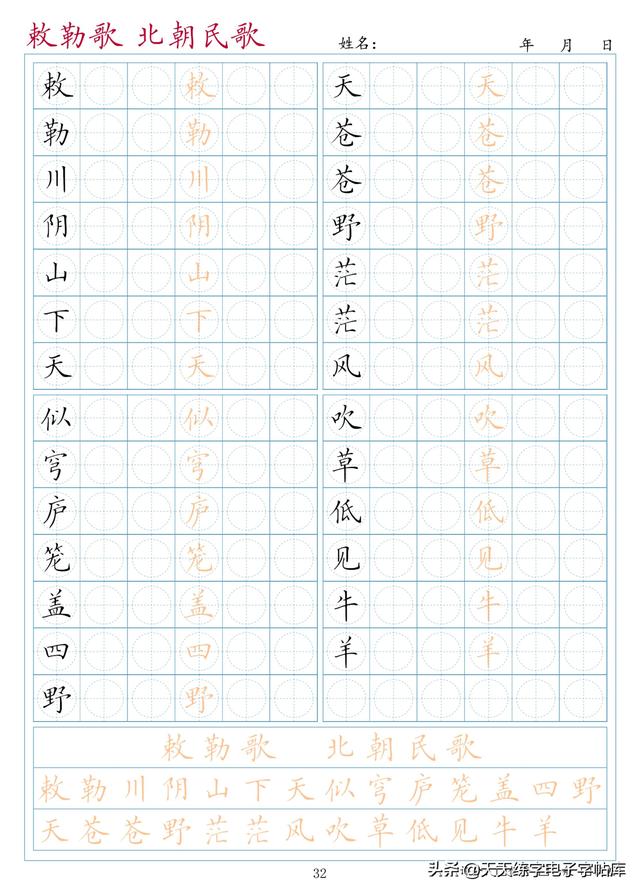 敕勒歌 北朝民歌
姓名： 年 月 日
敕 敕 天 天
勒 勒 苍 苍
川 川 苍 苍
阴 阴 野 野
山 山 茫 茫
下 下 茫 茫
天 天 风 风
似 似 吹 吹
穹 穹 草 草
庐 庐 低 低
笼 笼 见 见
盖 盖 牛 牛
四 四 羊 羊
野 野
敕勒歌 北朝民歌
敕勒川阴山下天似穹庐笼盖四野
天苍苍野茫茫风吹草低见牛羊
32
头条@天天练字电子字帖库